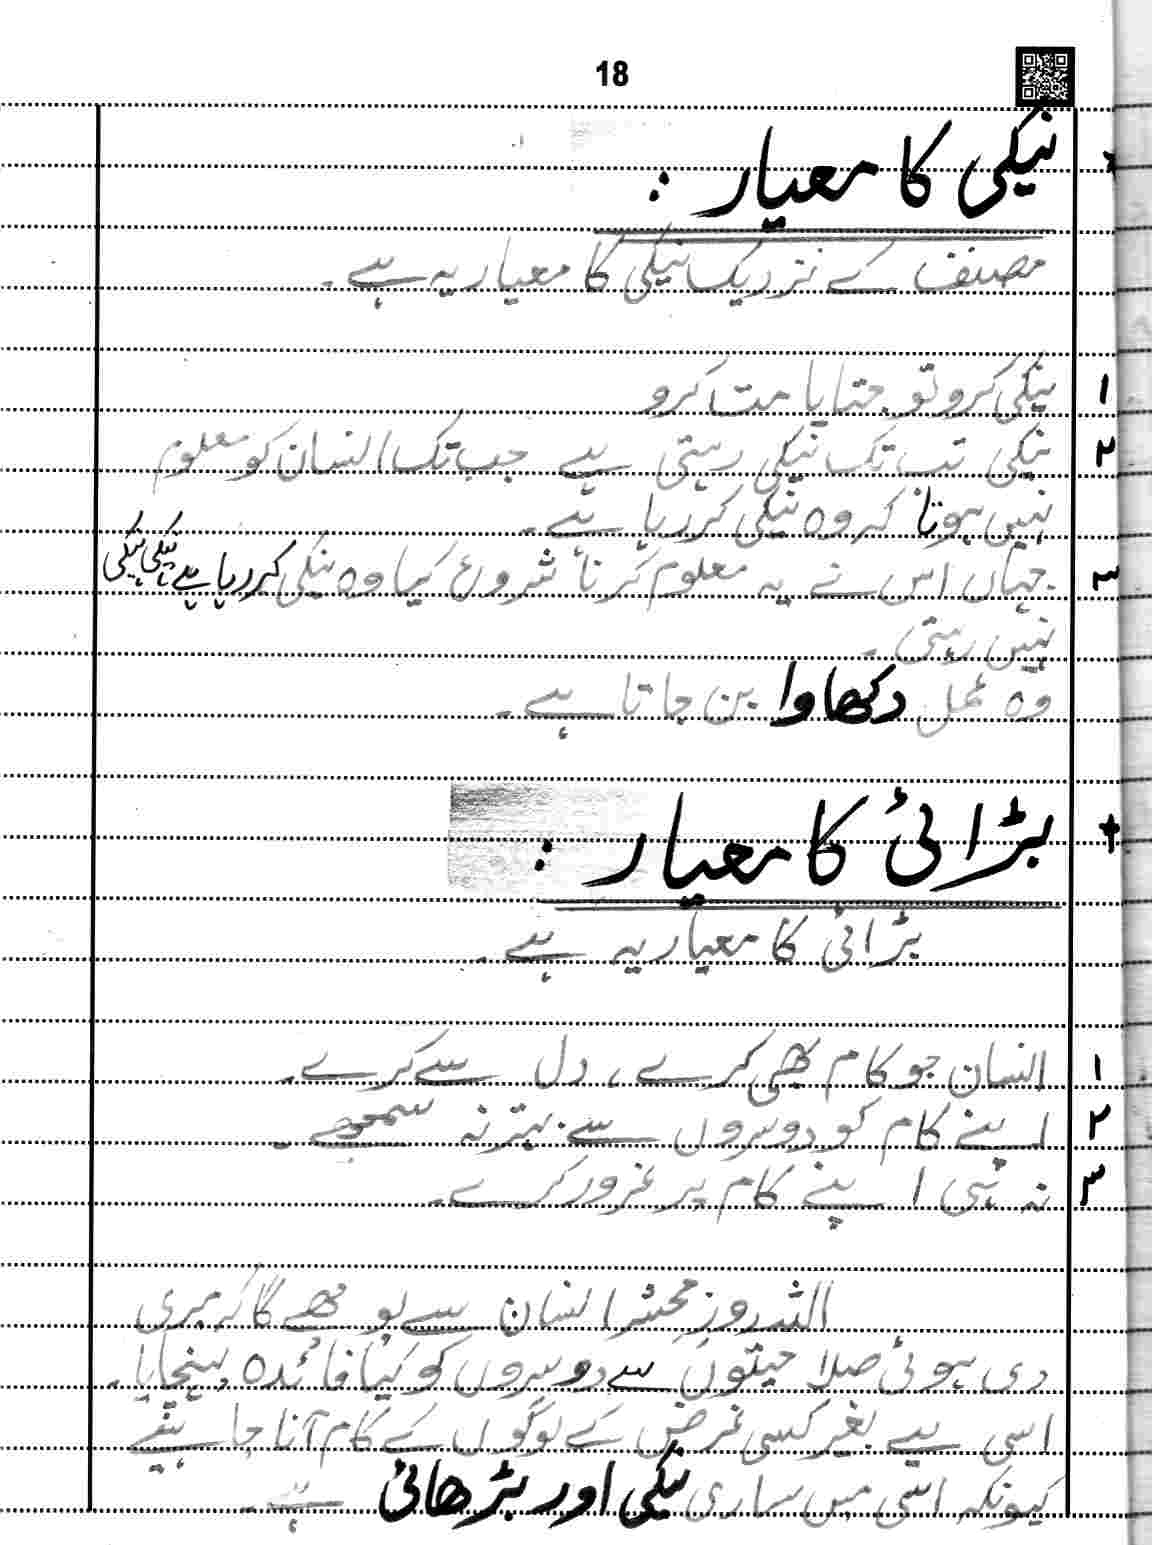 18
نیکی کا معیار :
مصنف کے نزدیک نیکی کا معیار یہ ہے ۔
۱ نیکی کرو تو جتایا مت کرو
۲ نیکی تب تک نیکی رہتی ہے جب تک انسان کو معلوم
نہیں ہوتا کہ وہ نیکی کر رہا ہے ۔
۳ جہاں اس نے یہ معلوم کرنا شروع کیا وہ نیکی کر رہا ہے نیکی نیکی
نہیں رہتی ۔
وہ عمل دکھاوا بن جاتا ہے ۔
بڑائی کا معیار :
بڑائی کا معیار یہ ہے ۔
۱ انسان جو کام بھی کرے ، دل سے کرے ۔
۲ اپنے کام کو دوسروں سے بہتر نہ سمجھے ۔
۳ نہ ہی اپنے کام پر غرور کرے ۔
اللہ روز محشر انسان سے پوچھے گا کہ میری
دی ہوئی صلاحیتوں سے دوسروں کو کیا فائدہ پہنچایا ۔
اسی لیے بغیر کسی غرض کے لوگوں کے کام آنا چاہیئے
کیونکہ اسی میں ساری نیکی اور بڑھائی ہے ۔